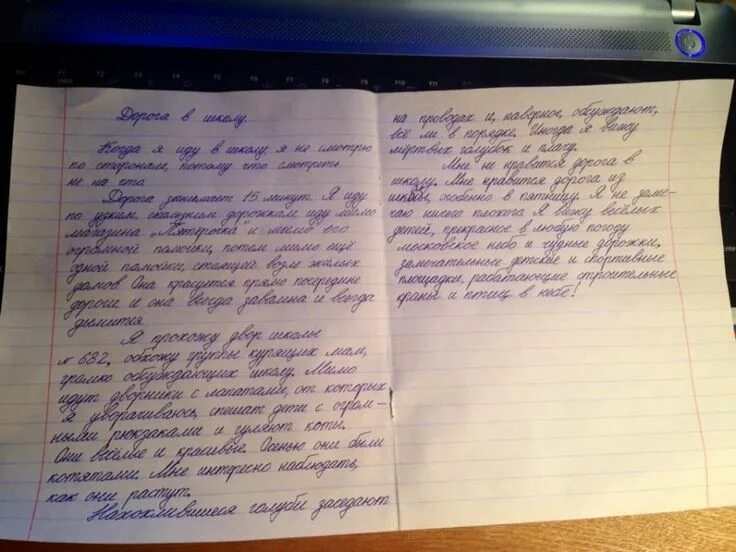 Дорога в школу.
Когда я иду в школу я не смотрю
по сторонам, потому что смотреть
не на что.
Дорога занимает 15 минут. Я иду
по узким, скользким дорожкам иду мимо
магазина "Пятёрочка" и мимо его
огромной помойки, потом мимо ещё
одной помойки, стоящей возле жилых
домов. Она красуется прямо посередине
дороги и она всегда завалена и всегда
дымится.
Я прохожу двор школы
№ 682, обхожу группы курящих мам,
громко обсуждающих школу. Мимо
идут дворники с лопатами, от которых
я уворачиваюсь, спешат дети с огром-
ными рюкзаками и гуляют коты.
Они весёлые и красивые. Осенью они были
котятами. Мне интересно наблюдать,
как они растут.
Нахохлившиеся голуби заседают
на проводах и, наверное, обсуждают,
всё ли в порядке. Иногда я вижу
мёртвых голубок и плачу.
Мне не нравится дорога в
школу. Мне нравится дорога из
школы, особенно в пятницу. Я не заме-
чаю ничего плохого. Я вижу весёлых
детей, прекрасное в любую погоду
московское небо и чудные дорожки,
замечательные детские и спортивные
площадки, работающие строительные
краны и птиц в небе!